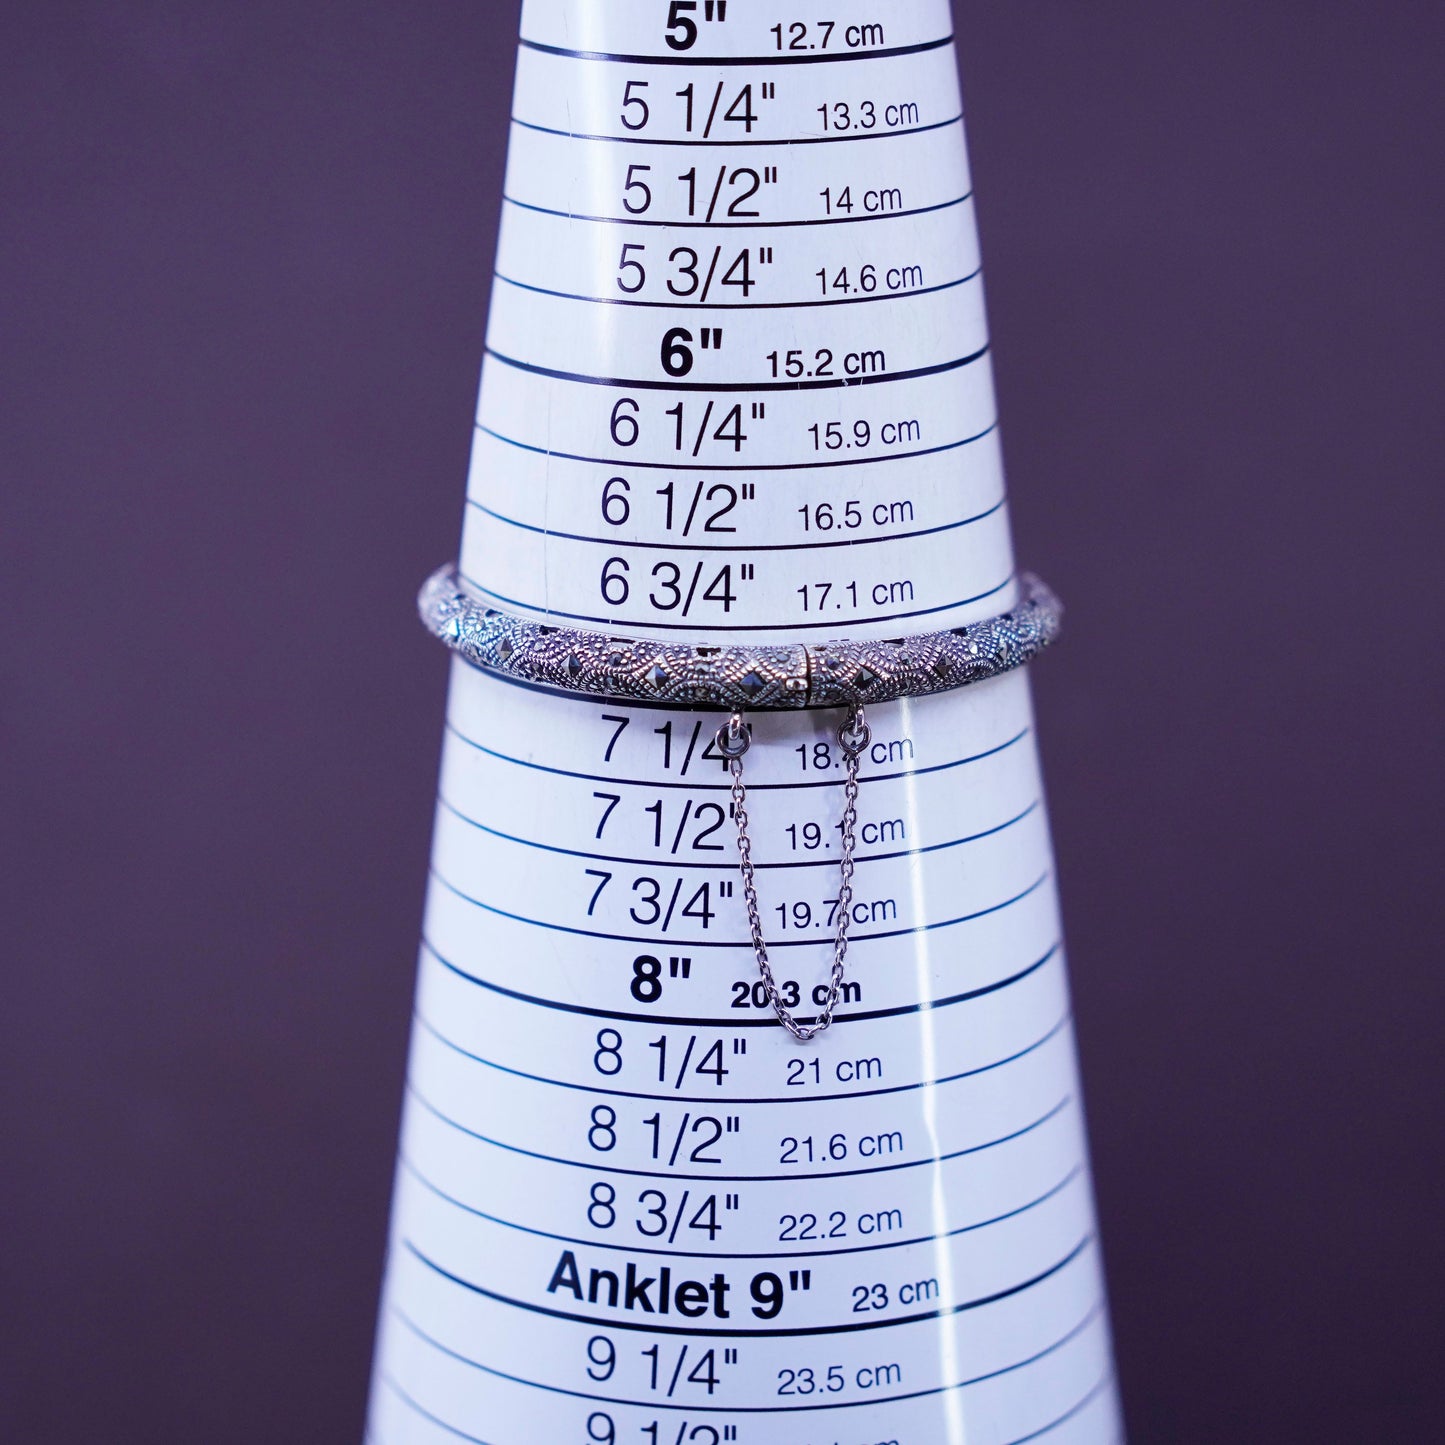 5" 12.7 cm
5 1/4" 13.3 cm
5 1/2" 14 cm
5 3/4" 14.6 cm
6" 15.2 cm
6 1/4" 15.9 cm
6 1/2" 16.5 cm
6 3/4" 17.1 cm
7 1/4" 18.4 cm
7 1/2" 19.1 cm
7 3/4" 19.7 cm
8" 20.3 cm
8 1/4" 21 cm
8 1/2" 21.6 cm
8 3/4" 22.2 cm
Anklet 9" 23 cm
9 1/4" 23.5 cm
9 1/2"